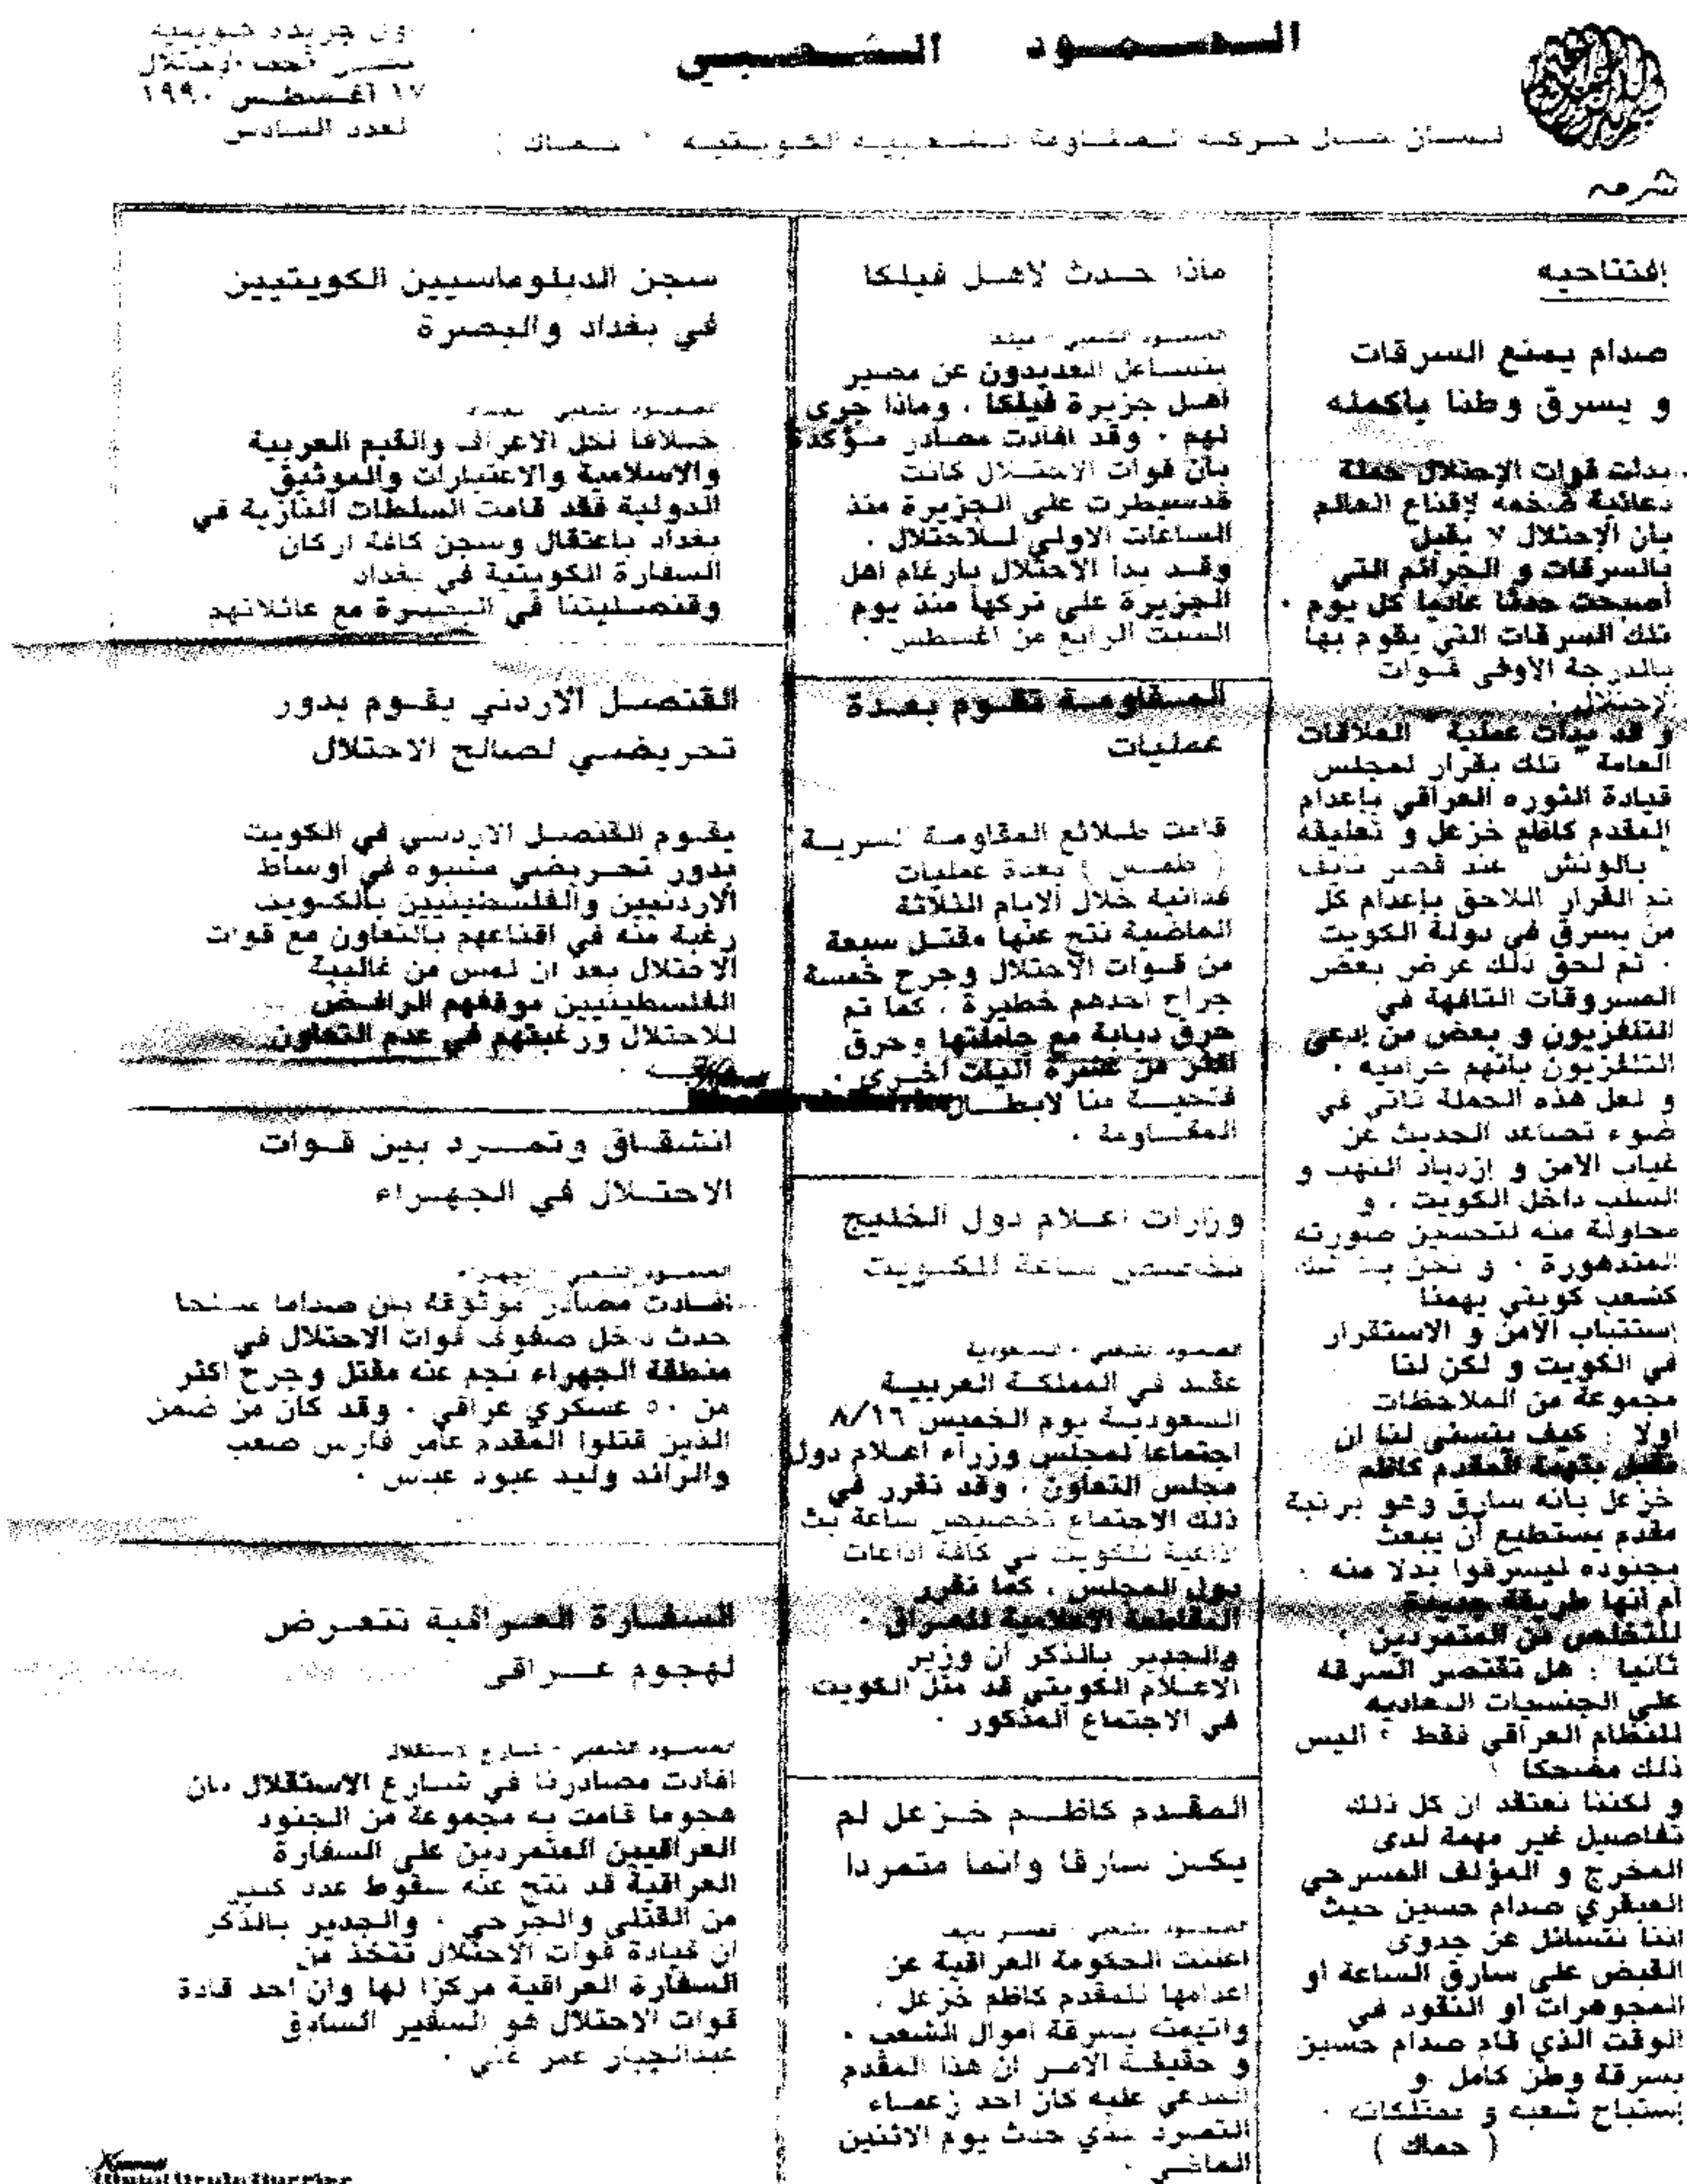 الصمود الشعبي
اول جريدة كويتيه
تحت الإحتلال
١٧ اغسطس ١٩٩٠
العدد السادس
لسان حال حركة المقاومة الشعبية الكويتية
إفتتاحيه
صدام يمنع السرقات
و يسرق وطنا بأكمله
بدات قوات الإحتلال حملة
دعائية ضخمه لإقناع العالم
بان الإحتلال لا يقبل
بالسرقات و الجرائم التي
أصبحت حدثا عاديا كل يوم .
تلك السرقات التي يقوم بها
بالدرجة الاولى قوات
الإحتلال .
و قد بدأت عملية " العلاقات
العامة " تلك بقرار لمجلس
قيادة الثوره العراقي بإعدام
المقدم كاظم خزعل و تعليقه
بالونش عند قصر نايف
ثم القرار اللاحق بإعدام كل
من يسرق في دولة الكويت
. ثم لحق ذلك عرض بعض
المسروقات التافهة في
التلفزيون و بعض من إدعى
التلفزيون بأنهم حراميه .
و لعل هذه الحملة تاتي في
ضوء تصاعد الحديث عن
غياب الامن و إزدياد النهب و
السلب داخل الكويت . و
محاولة منه لتحسين صورته
المتدهورة . و نحن بلا شك
كشعب كويتي يهمنا
إستتباب الأمن و الاستقرار
في الكويت و لكن لنا
مجموعة من الملاحظات
أولا : كيف يتسنى لنا ان
نقبل بتهمة المقدم كاظم
خزعل بانه سارق وهو برتبة
مقدم يستطيع أن يبعث
بجنوده ليسرقوا بدلا منه .
أم أنها طريقة جديدة
للتخلص من المتمردين ؟
ثانيا : هل تقتصر السرقه
على الجنسيات المعاديه
للنظام العراقي فقط ؟ اليس
ذلك مضحكا ؟
و لكننا نعتقد ان كل ذلك
تفاصيل غير مهمة لدى
المخرج و المؤلف المسرحي
العبقري صدام حسين حيث
اننا نتسائل عن جدوى
القبض على سارق الساعة أو
المجوهرات أو النقود في
الوقت الذي قام صدام حسين
بسرقة وطن كامل و
إستباح شعبه و ممتلكاته .
( حماك )
ماذا حدث لاهل فيلكا
الصمود الشعبي -
يتساءل العديدون عن مصير
اهل جزيرة فيلكا . وماذا جرى
لهم . وقد افادت مصادر مؤكدة
بأن قوات الاحتلال كانت
قدسيطرت على الجزيرة منذ
الساعات الاولى للاحتلال .
وقد بدا الاحتلال بارغام اهل
الجزيرة على تركها منذ يوم
السبت الرابع من اغسطس .
المقاومة تقوم بعدة
عمليات
قامت طلائع المقاومة السرية
بعدة عمليات
فدائية خلال الايام الثلاثة
الماضية نتج عنها مقتل سبعة
من قوات الاحتلال وجرح خمسة
جراح احدهم خطيرة . كما تم
حرق دبابة مع حاملتها وحرق
اكثر من عشرة اليات اخرى .
فتحية منا لابطال
المقاومة .
وزارات اعلام دول الخليج
تخصص ساعة للكويت
الصمود الشعبي - السعودية
عقد في المملكة العربية
السعودية يوم الخميس ٨/١٦
اجتماعا لمجلس وزراء اعلام دول
مجلس التعاون . وقد تقرر في
ذلك الاجتماع تخصيص ساعة بث
اذاعية للكويت في كافة اذاعات
دول المجلس . كما تقرر
المقاطعة الإعلامية للعراق .
والجدير بالذكر ان وزير
الاعلام الكويتي قد مثل الكويت
في الاجتماع المذكور .
المقدم كاظم خزعل لم
يكن سارقا وانما متمردا
الصمود الشعبي - قصر نايف
اعلنت الحكومة العراقية عن
اعدامها للمقدم كاظم خزعل .
واتهمته بسرقة اموال الشعب .
و حقيقة الامر ان هذا المقدم
المدعي عليه كان احد زعماء
التمرد الذي حدث يوم الاثنين
الماضي .
سجن الدبلوماسيين الكويتيين
في بغداد والبصرة
الصمود الشعبي - بغداد
خلافا لكل الاعراف والقيم العربية
والاسلامية والاعتبارات والموثيق
الدولية فقد قامت السلطات النازية في
بغداد باعتقال وسجن كافة اركان
السفارة الكويتية في بغداد
وقنصليتنا في البصرة مع عائلاتهم
القنصل الاردني يقوم بدور
تحريضي لصالح الاحتلال
يقوم القنصل الاردني في الكويت
بدور تحريضي مشبوه في اوساط
الأردنيين والفلسطينيين بالكويت
رغبة منه في اقناعهم بالتعاون مع قوات
الاحتلال بعد ان لمس من غالبية
الفلسطينيين موقفهم الرافض
للاحتلال ورغبتهم في عدم التعاون
انشقاق وتمرد بين قوات
الاحتلال في الجهراء
الصمود الشعبي - الجهراء
افادت مصادر موثوقة بان صداما مسلحا
حدث داخل صفوف قوات الاحتلال في
منطقة الجهراء نجم عنه مقتل وجرح اكثر
من ٥٠ عسكري عراقي . وقد كان من ضمن
الذين قتلوا المقدم عامر فارس صعب
والرائد وليد عبود عباس .
السفارة العراقية تتعرض
لهجوم عراقي
الصمود الشعبي - شارع الاستقلال
افادت مصادرنا في شارع الاستقلال بان
هجوما قامت به مجموعة من الجنود
العراقيين المتمردين على السفارة
العراقية قد نتج عنه سقوط عدد كبير
من القتلى والجرحى . والجدير بالذكر
ان قيادة قوات الاحتلال تتخذ من
السفارة العراقية مركزا لها وان احد قادة
قوات الاحتلال هو السفير السابق
عبدالجبار عمر غني .